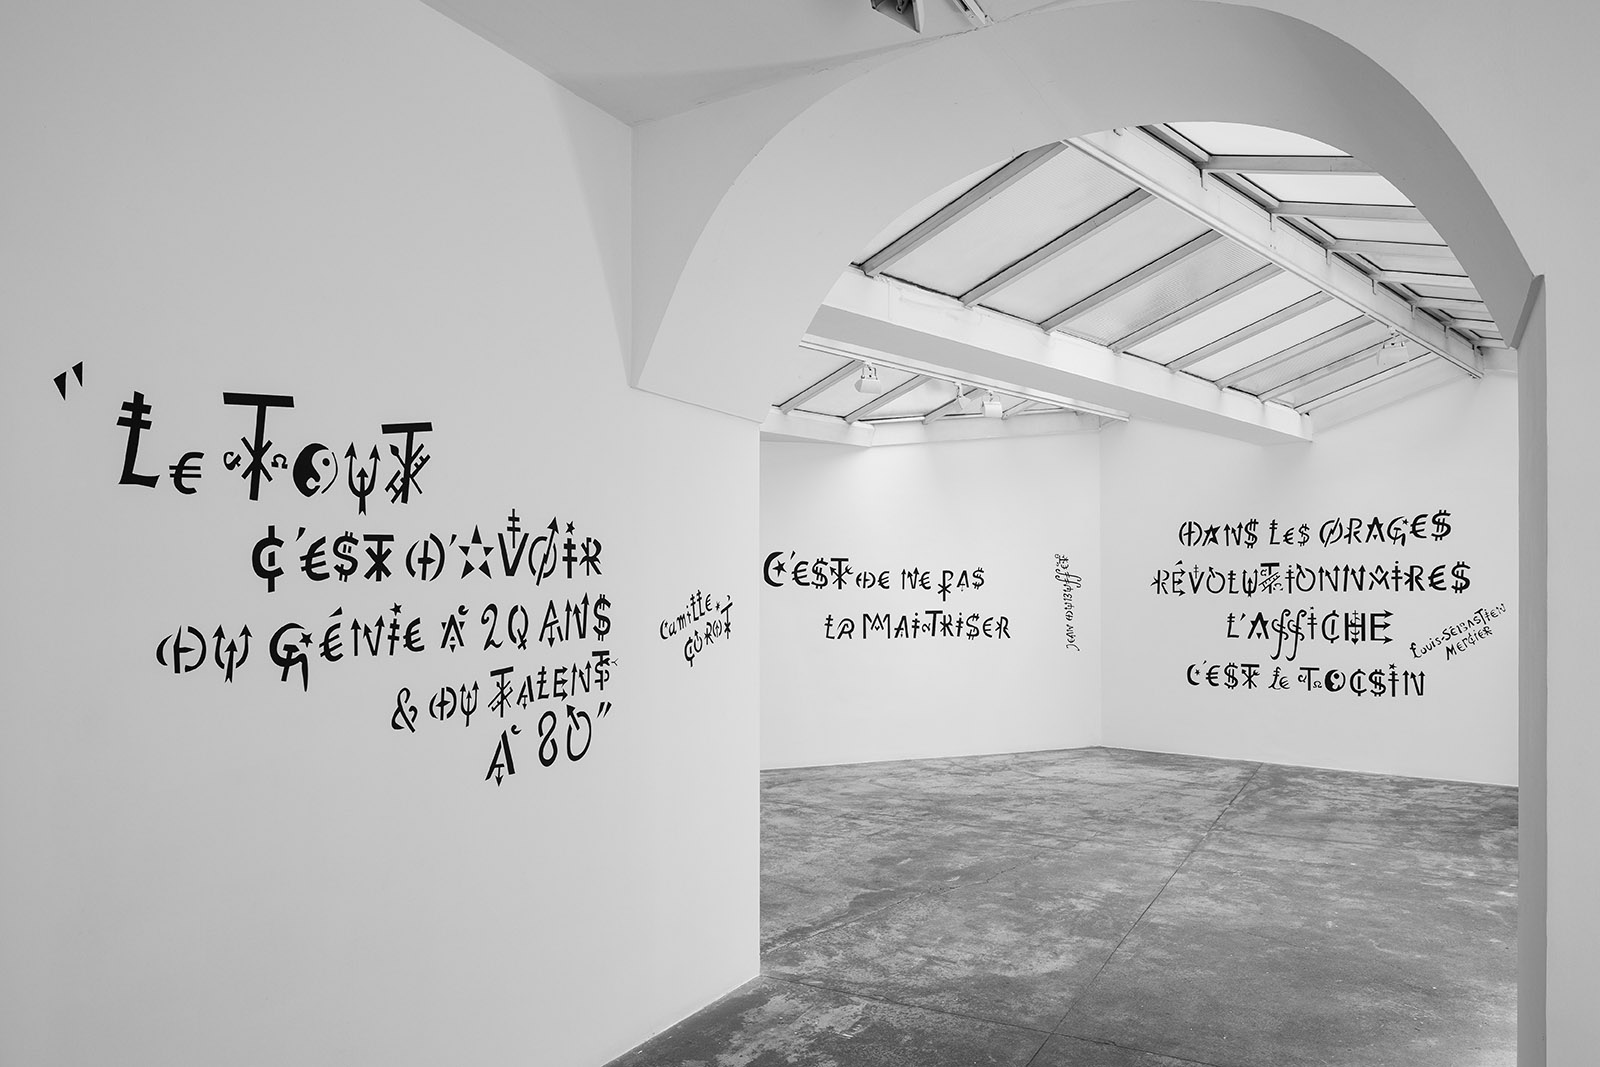 "Le TOUT
C'EST D'AVOIR
DU GÉNIE À 20 ANS
& DU TALENT
À 80"
Camille
COROT
C'EST DE NE PAS
LA MAITRISER
JEAN
DANS LES ORAGES
RÉVOLUTIONNAIRES
L'AFFICHE
C'EST LE TOCSIN
Louis-SÉBASTIEN
MERCIER